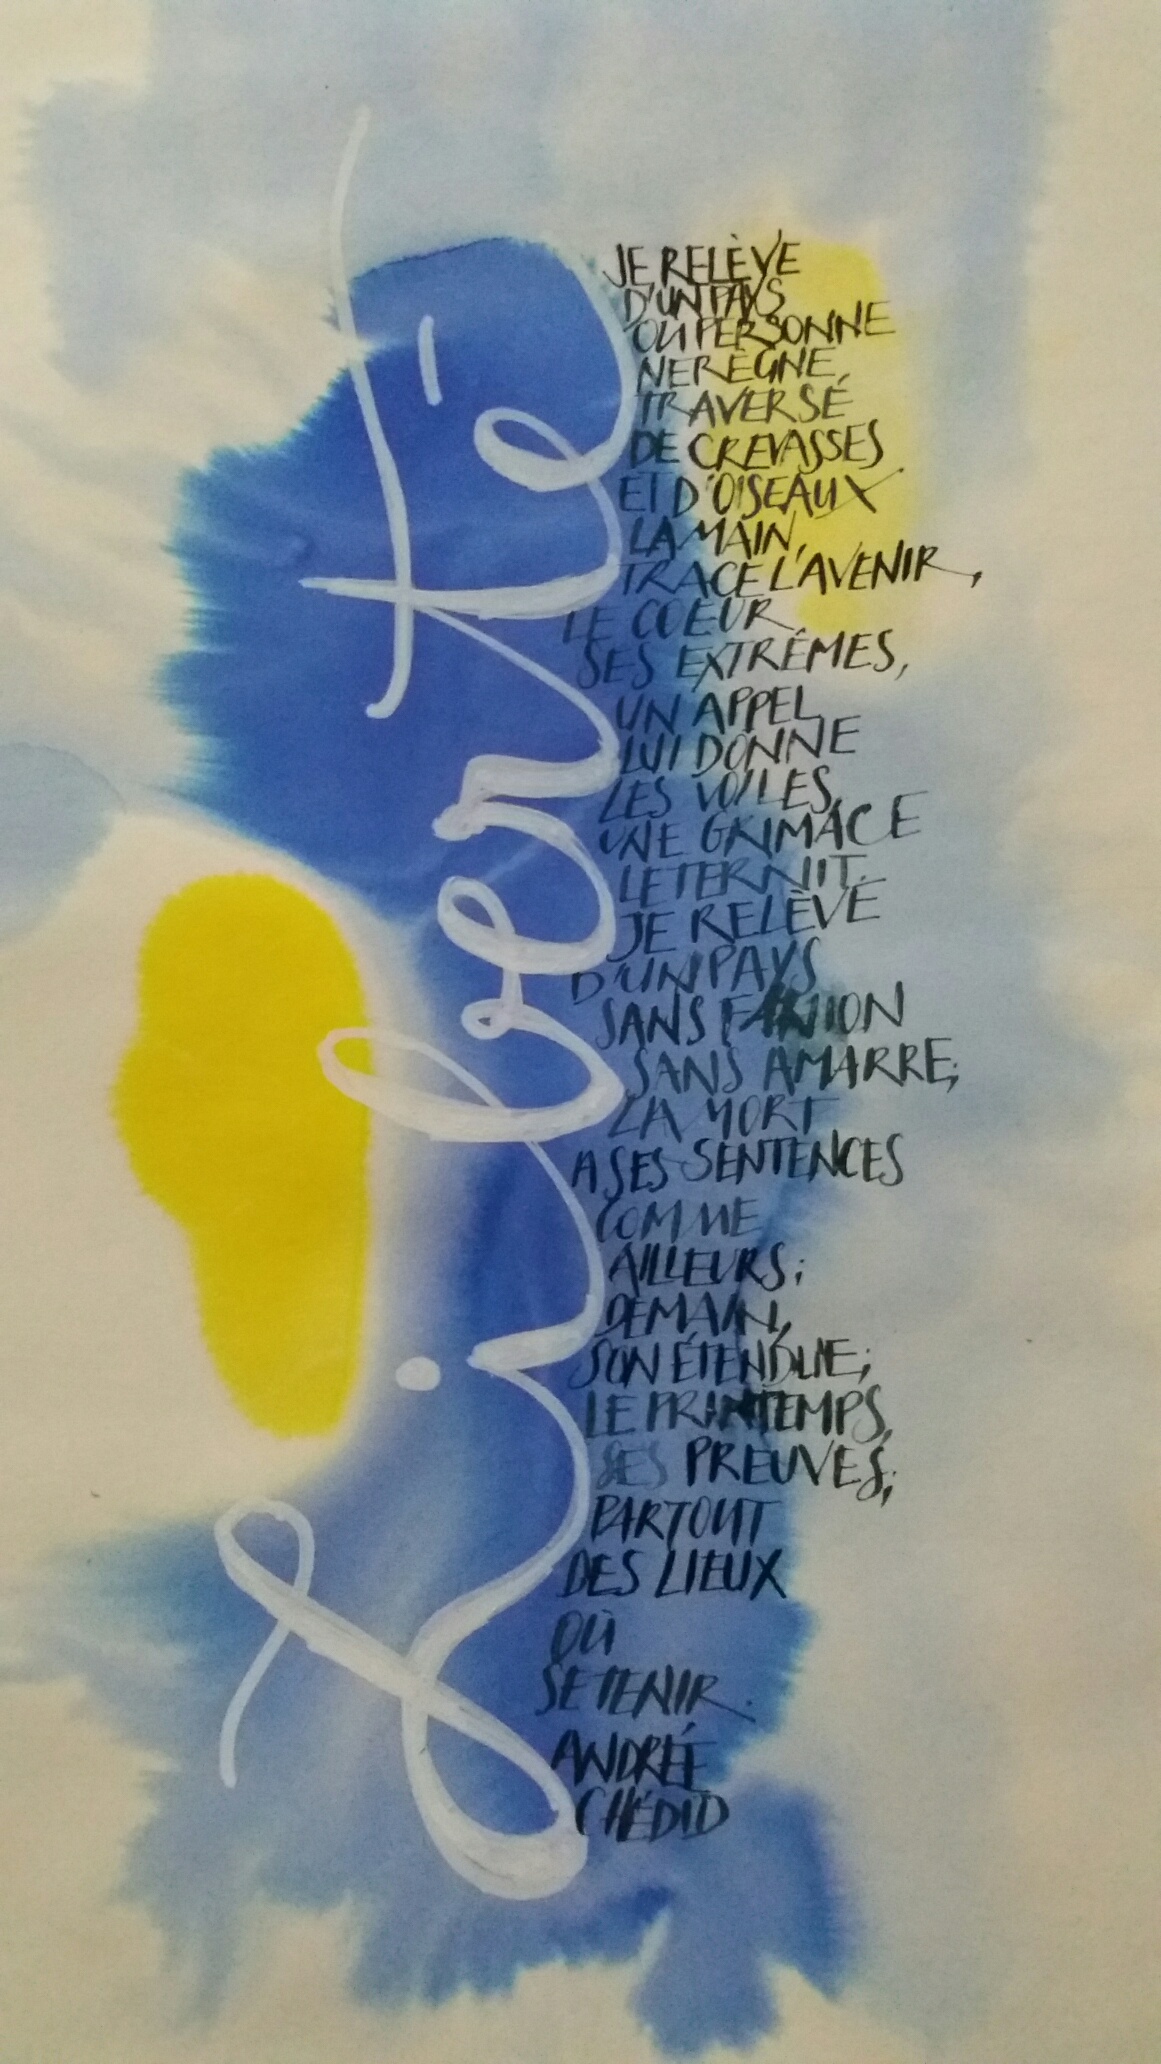 Liberté
JE RELÈVE
D'UN PAYS
OU PERSONNE
NE RÈGNE,
TRAVERSÉ
DE CREVASSES
ET D'OISEAUX
LA MAIN,
TRACE L'AVENIR,
LE COEUR
SES EXTRÊMES,
UN APPEL
LUI DONNE
LES VOILES,
UNE GRIMACE
LE TERNIT.
JE RELÈVE
D'UN PAYS
SANS FANION
SANS AMARRE;
LA MORT
A SES SENTENCES
COMME
AILLEURS;
DEMAIN,
SON ÉTENDUE;
LE PRINTEMPS,
SES PREUVES;
PARTOUT
DES LIEUX
OÙ
SE TENIR.
ANDRÉE
CHÉDID